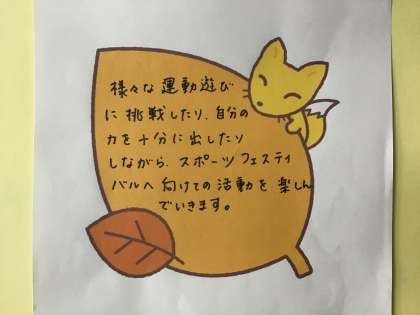 様々な運動遊び
に挑戦したり、自分の
力を十分に出したり
しながら、スポーツフェスティ
バルへ向けての活動を楽しん
でいきます。